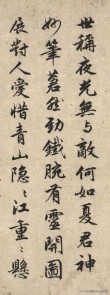 世稱夜光無與敵何如夏君神
妙筆蒼然勁鐵腕有靈開圖
展對人愛惜青山隱〻江重〻懸